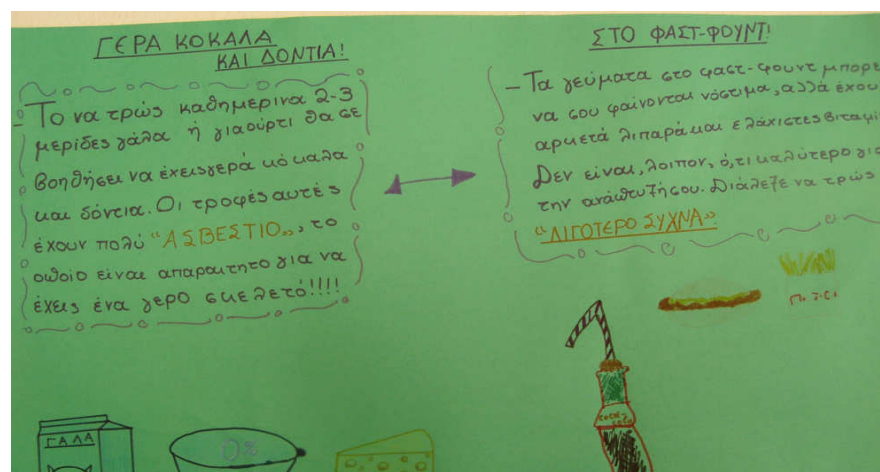 ΓΕΡΑ ΚΟΚΑΛΑ
ΚΑΙ ΔΟΝΤΙΑ!
– Το να τρώς καθημερινα 2-3
μερίδες γάλα ή γιαούρτι θα σε
βοηθήσει να έχεις γερά κόκαλα
και δόντια. Οι τροφές αυτές
έχουν πολύ "ΑΣΒΕΣΤΙΟ", το
οποίο είναι απαραιτητο για να
έχεις ένα γερο σκελετό!!!!
ΣΤΟ ΦΑΣΤ-ΦΟΥΝΤ!
– Τα γεύματα στο φαστ-φουντ μπορε
να σου φαίνονται νόστιμα, αλλά έχου
αρκετά λιπαρά και ελάχιστες βιταμί
Δεν είναι, λοιπον, ό,τι καλύτερο για
την ανάπτυξή σου. Διάλεξε να τρώς
"ΛΙΓΟΤΕΡΟ ΣΥΧΝΑ"
ΓΑΛΑ
0%